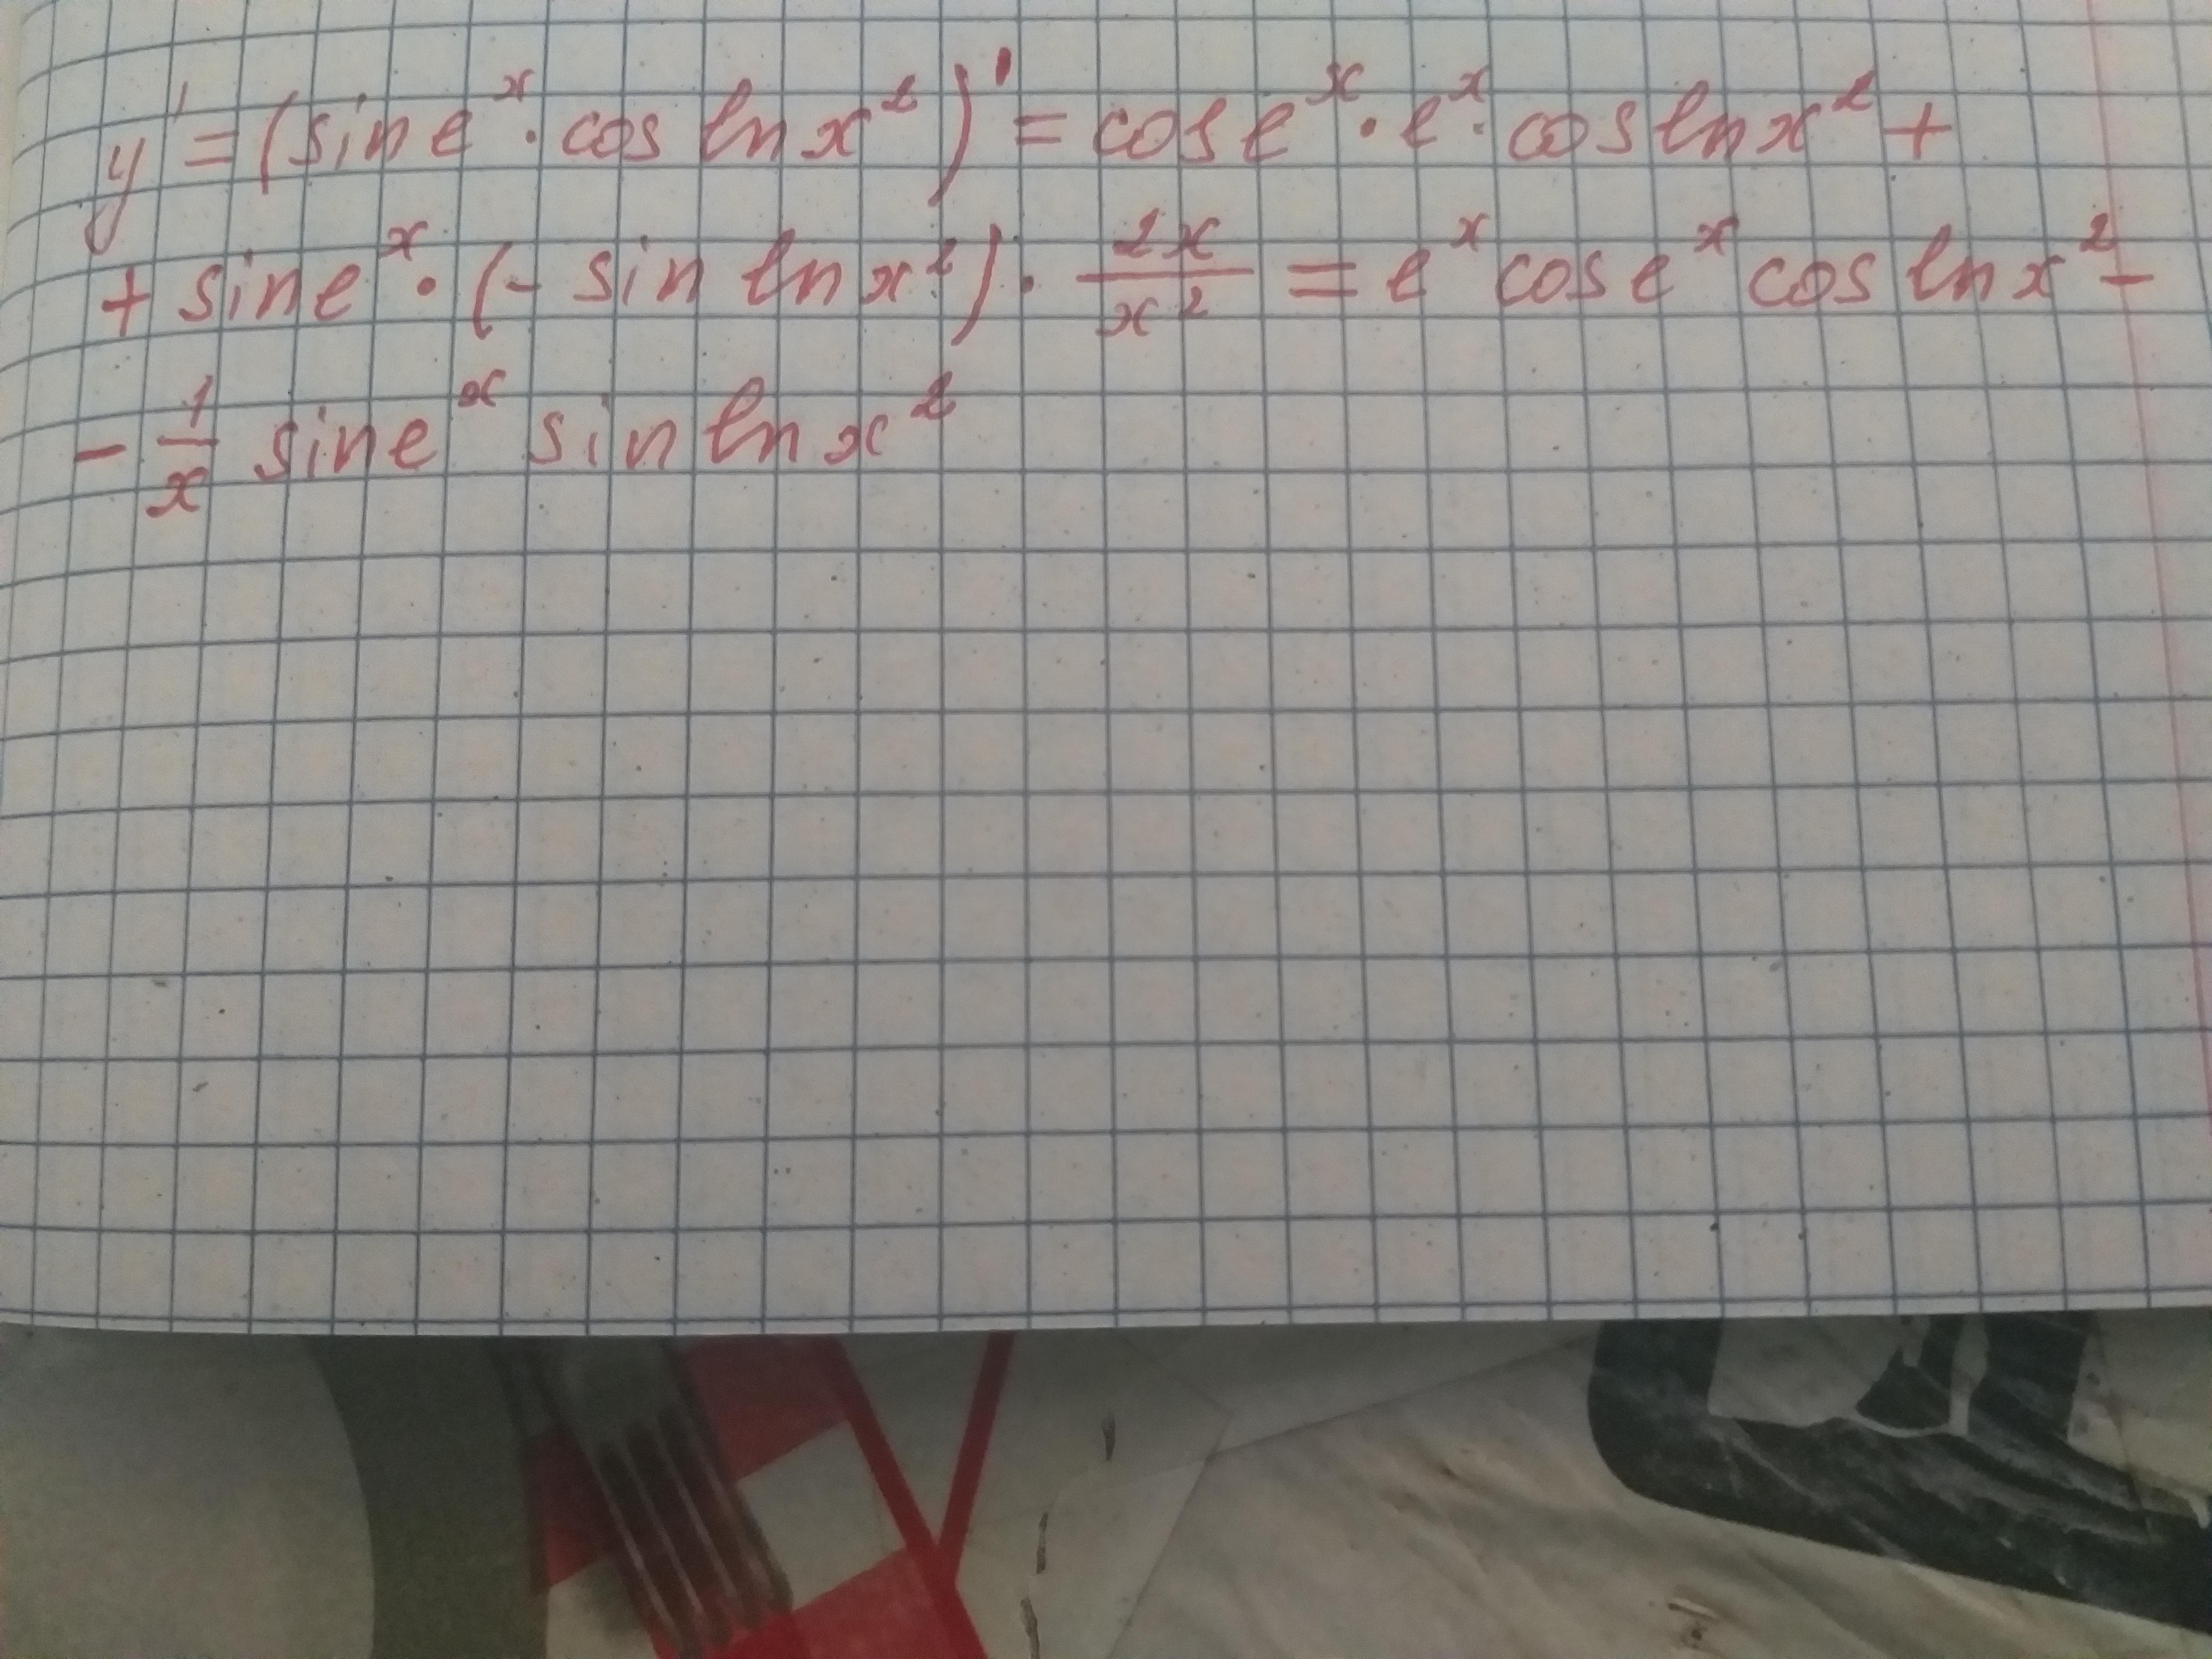 y' = (sin eˣ · cos ln x²)' = cos eˣ · eˣ · cos ln x² +
+ sin eˣ · (- sin ln x²) · 2x/x² = eˣ cos eˣ cos ln x² -
- 1/x sin eˣ sin ln x²